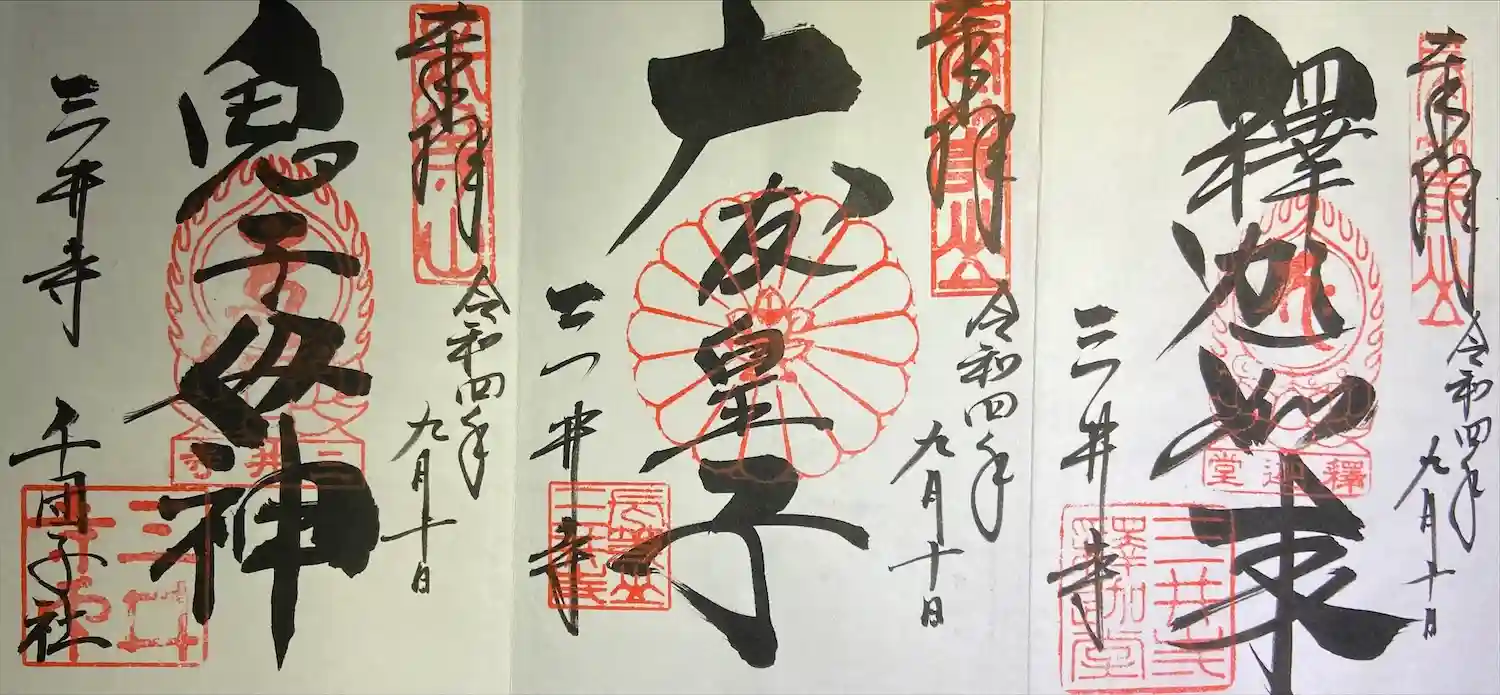 奉拝
令和四年
九月十日
釋迦如来
釋迦堂
三井寺
奉拝
令和四年
九月十日
大友皇子
三井寺
奉拝
令和四年
九月十日
鬼子母神
三井寺
三井寺
千団子社